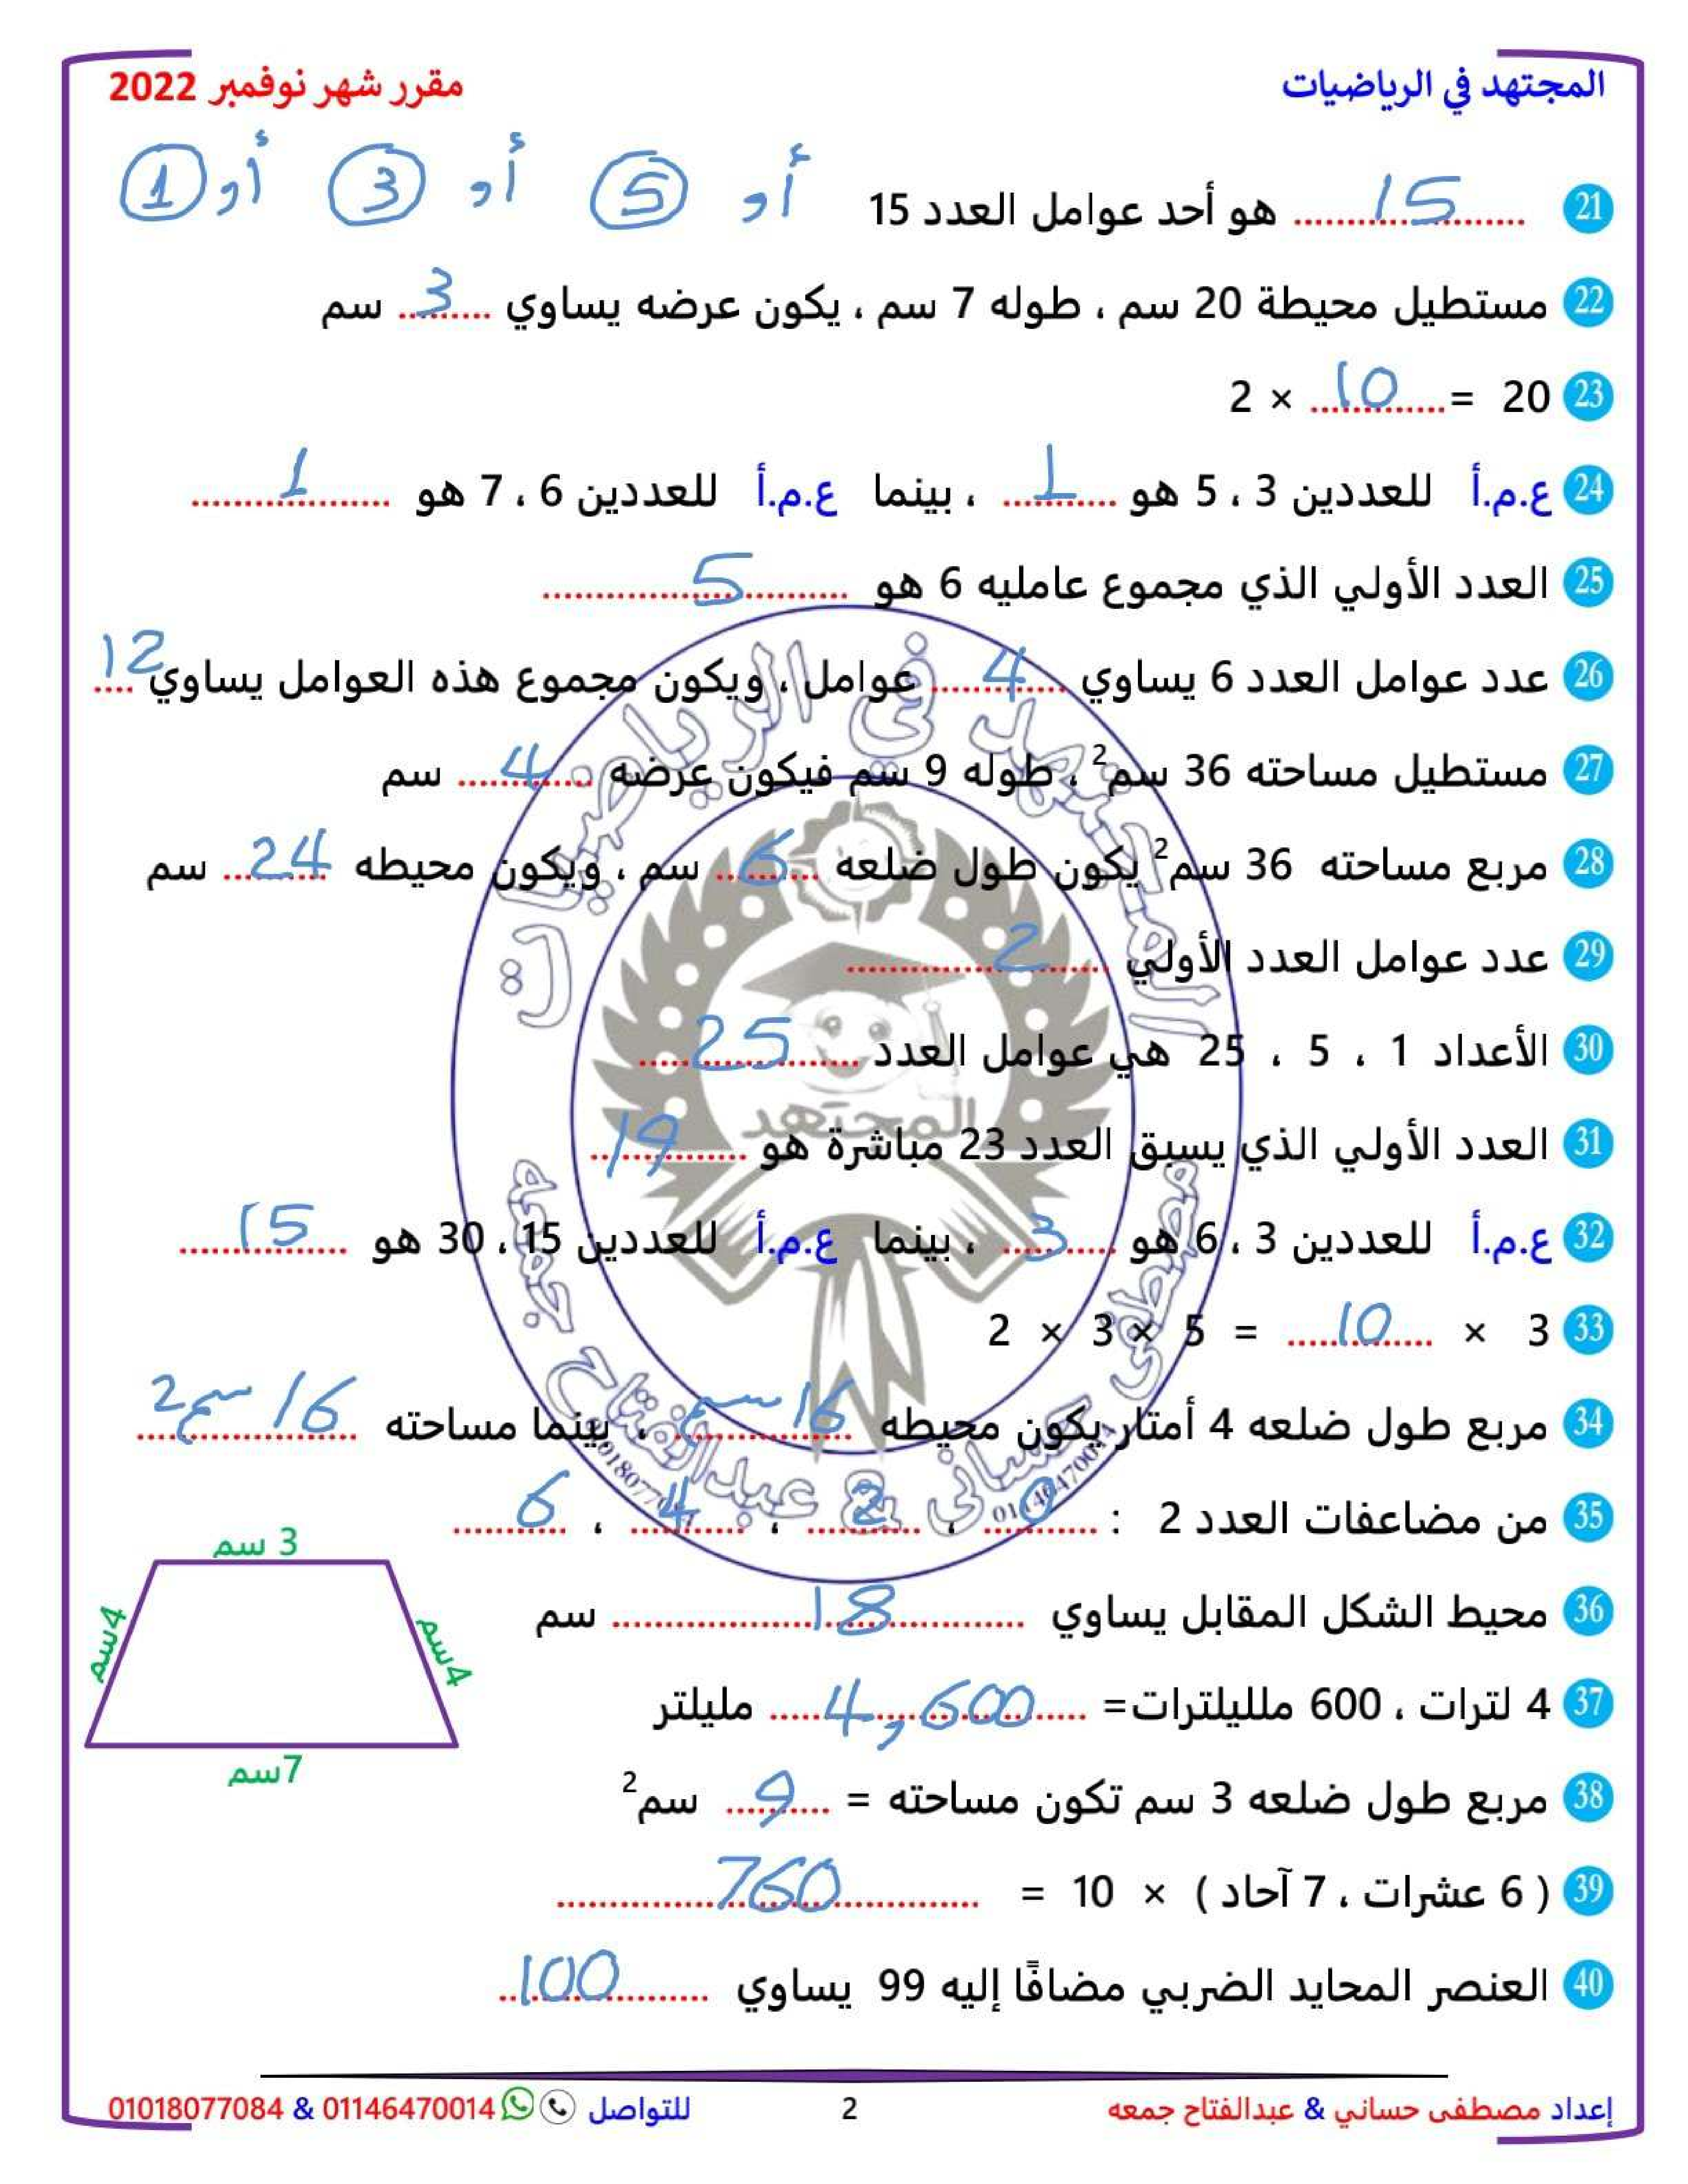 المجتهد في الرياضيات
مقرر شهر نوفمبر 2022
21 ......15...... هو أحد عوامل العدد 15 أو 5 أو 3 أو 1
22 مستطيل محيطة 20 سم ، طوله 7 سم ، يكون عرضه يساوي ...3... سم
23 20 = ...10... × 2
24 ع.م.أ للعددين 3 ، 5 هو ...1... ، بينما ع.م.أ للعددين 6 ، 7 هو ...1...
25 العدد الأولي الذي مجموع عامليه 6 هو ...5...
26 عدد عوامل العدد 6 يساوي ...4... عوامل ، ويكون مجموع هذه العوامل يساوي 12....
27 مستطيل مساحته 36 سم² ، طوله 9 سم فيكون عرضه ...4... سم
28 مربع مساحته 36 سم² يكون طول ضلعه ...6... سم ، ويكون محيطه ...24... سم
29 عدد عوامل العدد الأولي ...2...
30 الأعداد 1 ، 5 ، 25 هي عوامل العدد ...25...
31 العدد الأولي الذي يسبق العدد 23 مباشرة هو ...19...
32 ع.م.أ للعددين 3 ، 6 هو ...3... ، بينما ع.م.أ للعددين 15 ، 30 هو ...15...
33 3 × ...10... = 5 × 3 × 2
34 مربع طول ضلعه 4 أمتار يكون محيطه ...16 سم... ، بينما مساحته ...16 سم2...
35 من مضاعفات العدد 2 : ...0... ، ...2... ، ...4... ، ...6...
3 سم
4سم
4سم
7سم
36 محيط الشكل المقابل يساوي ...18... سم
37 4 لترات ، 600 ملليلترات= ...4,600... مليلتر
38 مربع طول ضلعه 3 سم تكون مساحته = ...9... سم²
39 ( 6 عشرات ، 7 آحاد ) × 10 = ...760...
40 العنصر المحايد الضربي مضافًا إليه 99 يساوي ...100...
المجتهد في الرياضيات
المجتهد
مصطفى حساني & عبدالفتاح جمعه
إعداد مصطفى حساني & عبدالفتاح جمعه
2
للتواصل 01146470014 & 01018077084